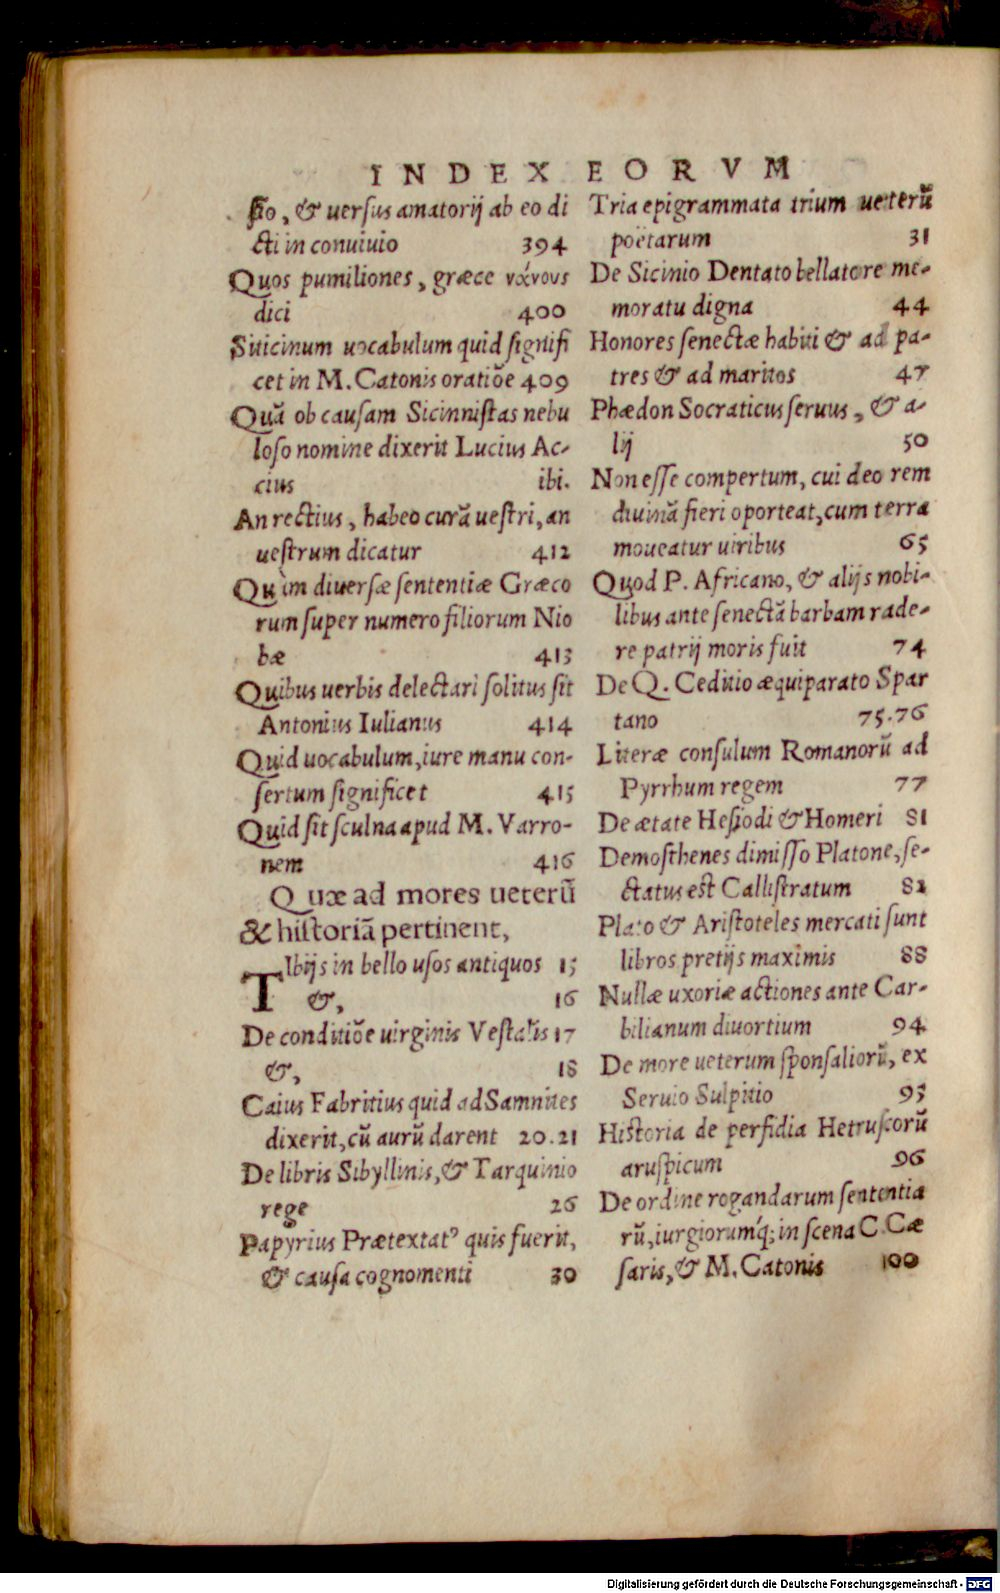 INDEX EORVM
ſto, & uerſus amatorij ab eo di
cti in conuiuio 394
Quos pumiliones, græce νάνους
dici 400
Siticinum uocabulum quid ſignifi
cet in M. Catonis oratiōe 409
Quā ob cauſam Sicinniſtas nebu
loſo nomine dixerit Lucius Ac-
cius ibi.
An rectius, habeo curā ueſtri, an
ueſtrum dicatur 412
Quàm diuerſæ ſententiæ Græco
rum ſuper numero filiorum Nio
bæ 413
Quibus uerbis delectari ſolitus ſit
Antonius Iulianus 414
Quid uocabulum, iure manu con-
ſertum ſignificet 415
Quid ſit ſculna apud M. Varro-
nem 416
Quæ ad mores ueterū
& hiſtoriā pertinent,
TIbijs in bello uſos antiquos 15
&, 16
De conditiōe uirginis Veſtalis 17
&, 18
Caius Fabritius quid ad Samnites
dixerit, cū aurū darent 20.21
De libris Sibyllinis, & Tarquinio
rege 26
Papyrius Prætextatꝰ quis fuerit,
& cauſa cognomenti 30
Tria epigrammata trium ueterū
poëtarum 31
De Sicinio Dentato bellatore me-
moratu digna 44
Honores ſenectæ habiti & ad pa-
tres & ad maritos 47
Phædon Socraticus ſeruus, & a-
lij 50
Non eſſe compertum, cui deo rem
diuinā fieri oporteat, cum terra
moueatur uiribus 65
Quod P. Africano, & alijs nobi-
libus ante ſenectā barbam rade-
re patrij moris fuit 74
De Q. Ceditio æquiparato Spar
tano 75.76
Literæ conſulum Romanorū ad
Pyrrhum regem 77
De ætate Heſiodi & Homeri 81
Demoſthenes dimiſſo Platone, ſe-
ctatus eſt Calliſtratum 82
Plato & Ariſtoteles mercati ſunt
libros pretijs maximis 88
Nullæ uxoriæ actiones ante Car-
bilianum diuortium 94
De more ueterum ſponſaliorū, ex
Seruio Sulpitio 95
Hiſtoria de perfidia Hetruſcorū
aruſpicum 96
De ordine rogandarum ſententia
rū, iurgiorumq́; in ſcena C. Cæ
ſaris, & M. Catonis 100
Digitalisierung gefördert durch die Deutsche Forschungsgemeinschaft - DFG